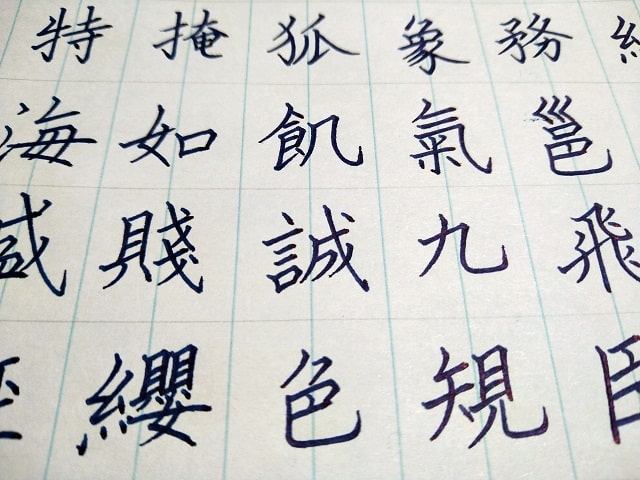 特掩狐象務
海如飢氣邕
賤誠九飛
纓色規